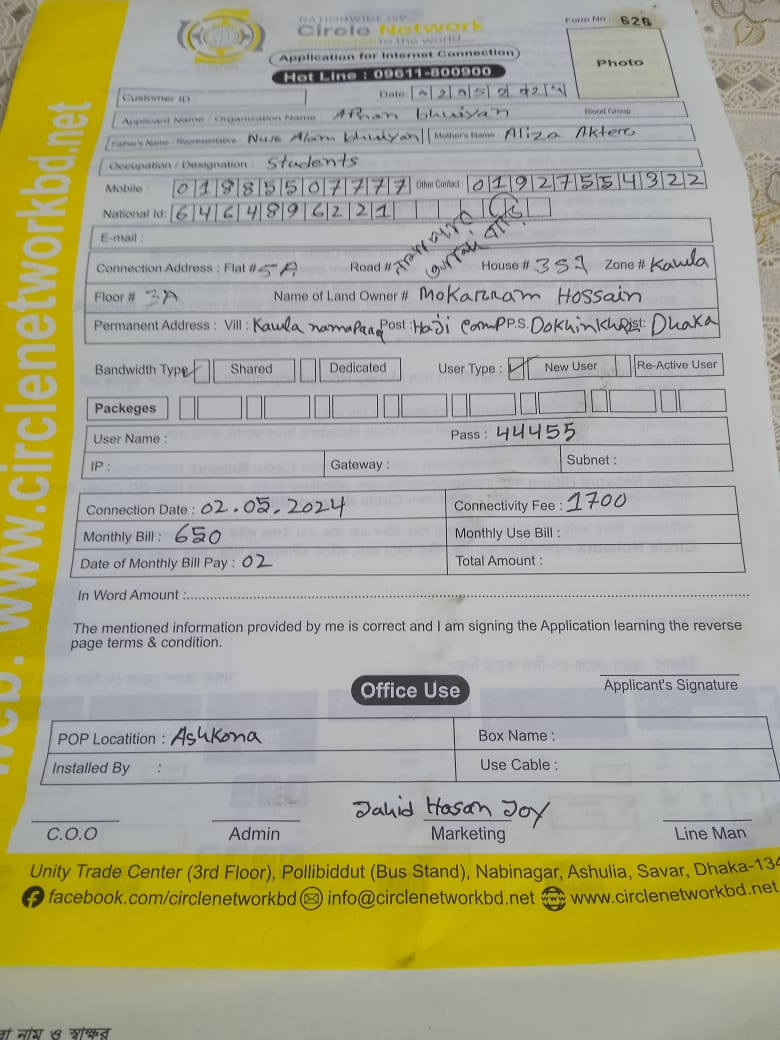 NATIONWIDE ISP
Circle Network
connected to the world
Form No 626
Application for Internet Connection
Hot Line : 09611-800900
Photo
Customer ID :
Date 02052024
Applicant Name / Organisation Name : Afnan bhuiyan Blood Group
Father's Name / Representative : Nure Alam bhuiyan Mother's Name : Aliza Akter
Occupation / Designation : Students
Mobile : 01885507777 Other Contact : 01927554322
National Id: 6464896221
E-mail :
Connection Address : Flat # 5A Road # House # 351 Zone # Kawla
Floor # 3A Name of Land Owner # Mokarram Hossain
Permanent Address : Vill : Kawla namapara Post : Haji Camp P.S. Dokhinkhan Dist: Dhaka
Bandwidth Type Shared Dedicated User Type : New User Re-Active User
Packeges
User Name : Pass : 44455
IP : Gateway : Subnet :
Connection Date : 02.05.2024 Connectivity Fee : 1700
Monthly Bill : 650 Monthly Use Bill :
Date of Monthly Bill Pay : 02 Total Amount :
In Word Amount :
The mentioned information provided by me is correct and I am signing the Application learning the reverse
page terms & condition.
Applicant's Signature
Office Use
POP Locatition : Ashkona Box Name :
Installed By : Use Cable :
Jahid Hasan Joy
C.O.O Admin Marketing Line Man
Unity Trade Center (3rd Floor), Pollibiddut (Bus Stand), Nabinagar, Ashulia, Savar, Dhaka-134
facebook.com/circlenetworkbd info@circlenetworkbd.net www.circlenetworkbd.net
web: www.circlenetworkbd.net
নাম ও স্বাক্ষর